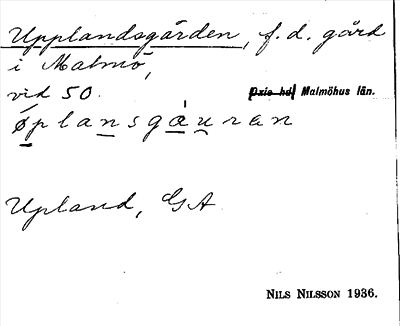 Upplandsgården, f.d. gård
i Malmö,
vid 50.
Oxie hd Malmöhus län.
øplansgáuran
Upland, GA
NILS NILSSON 1936.